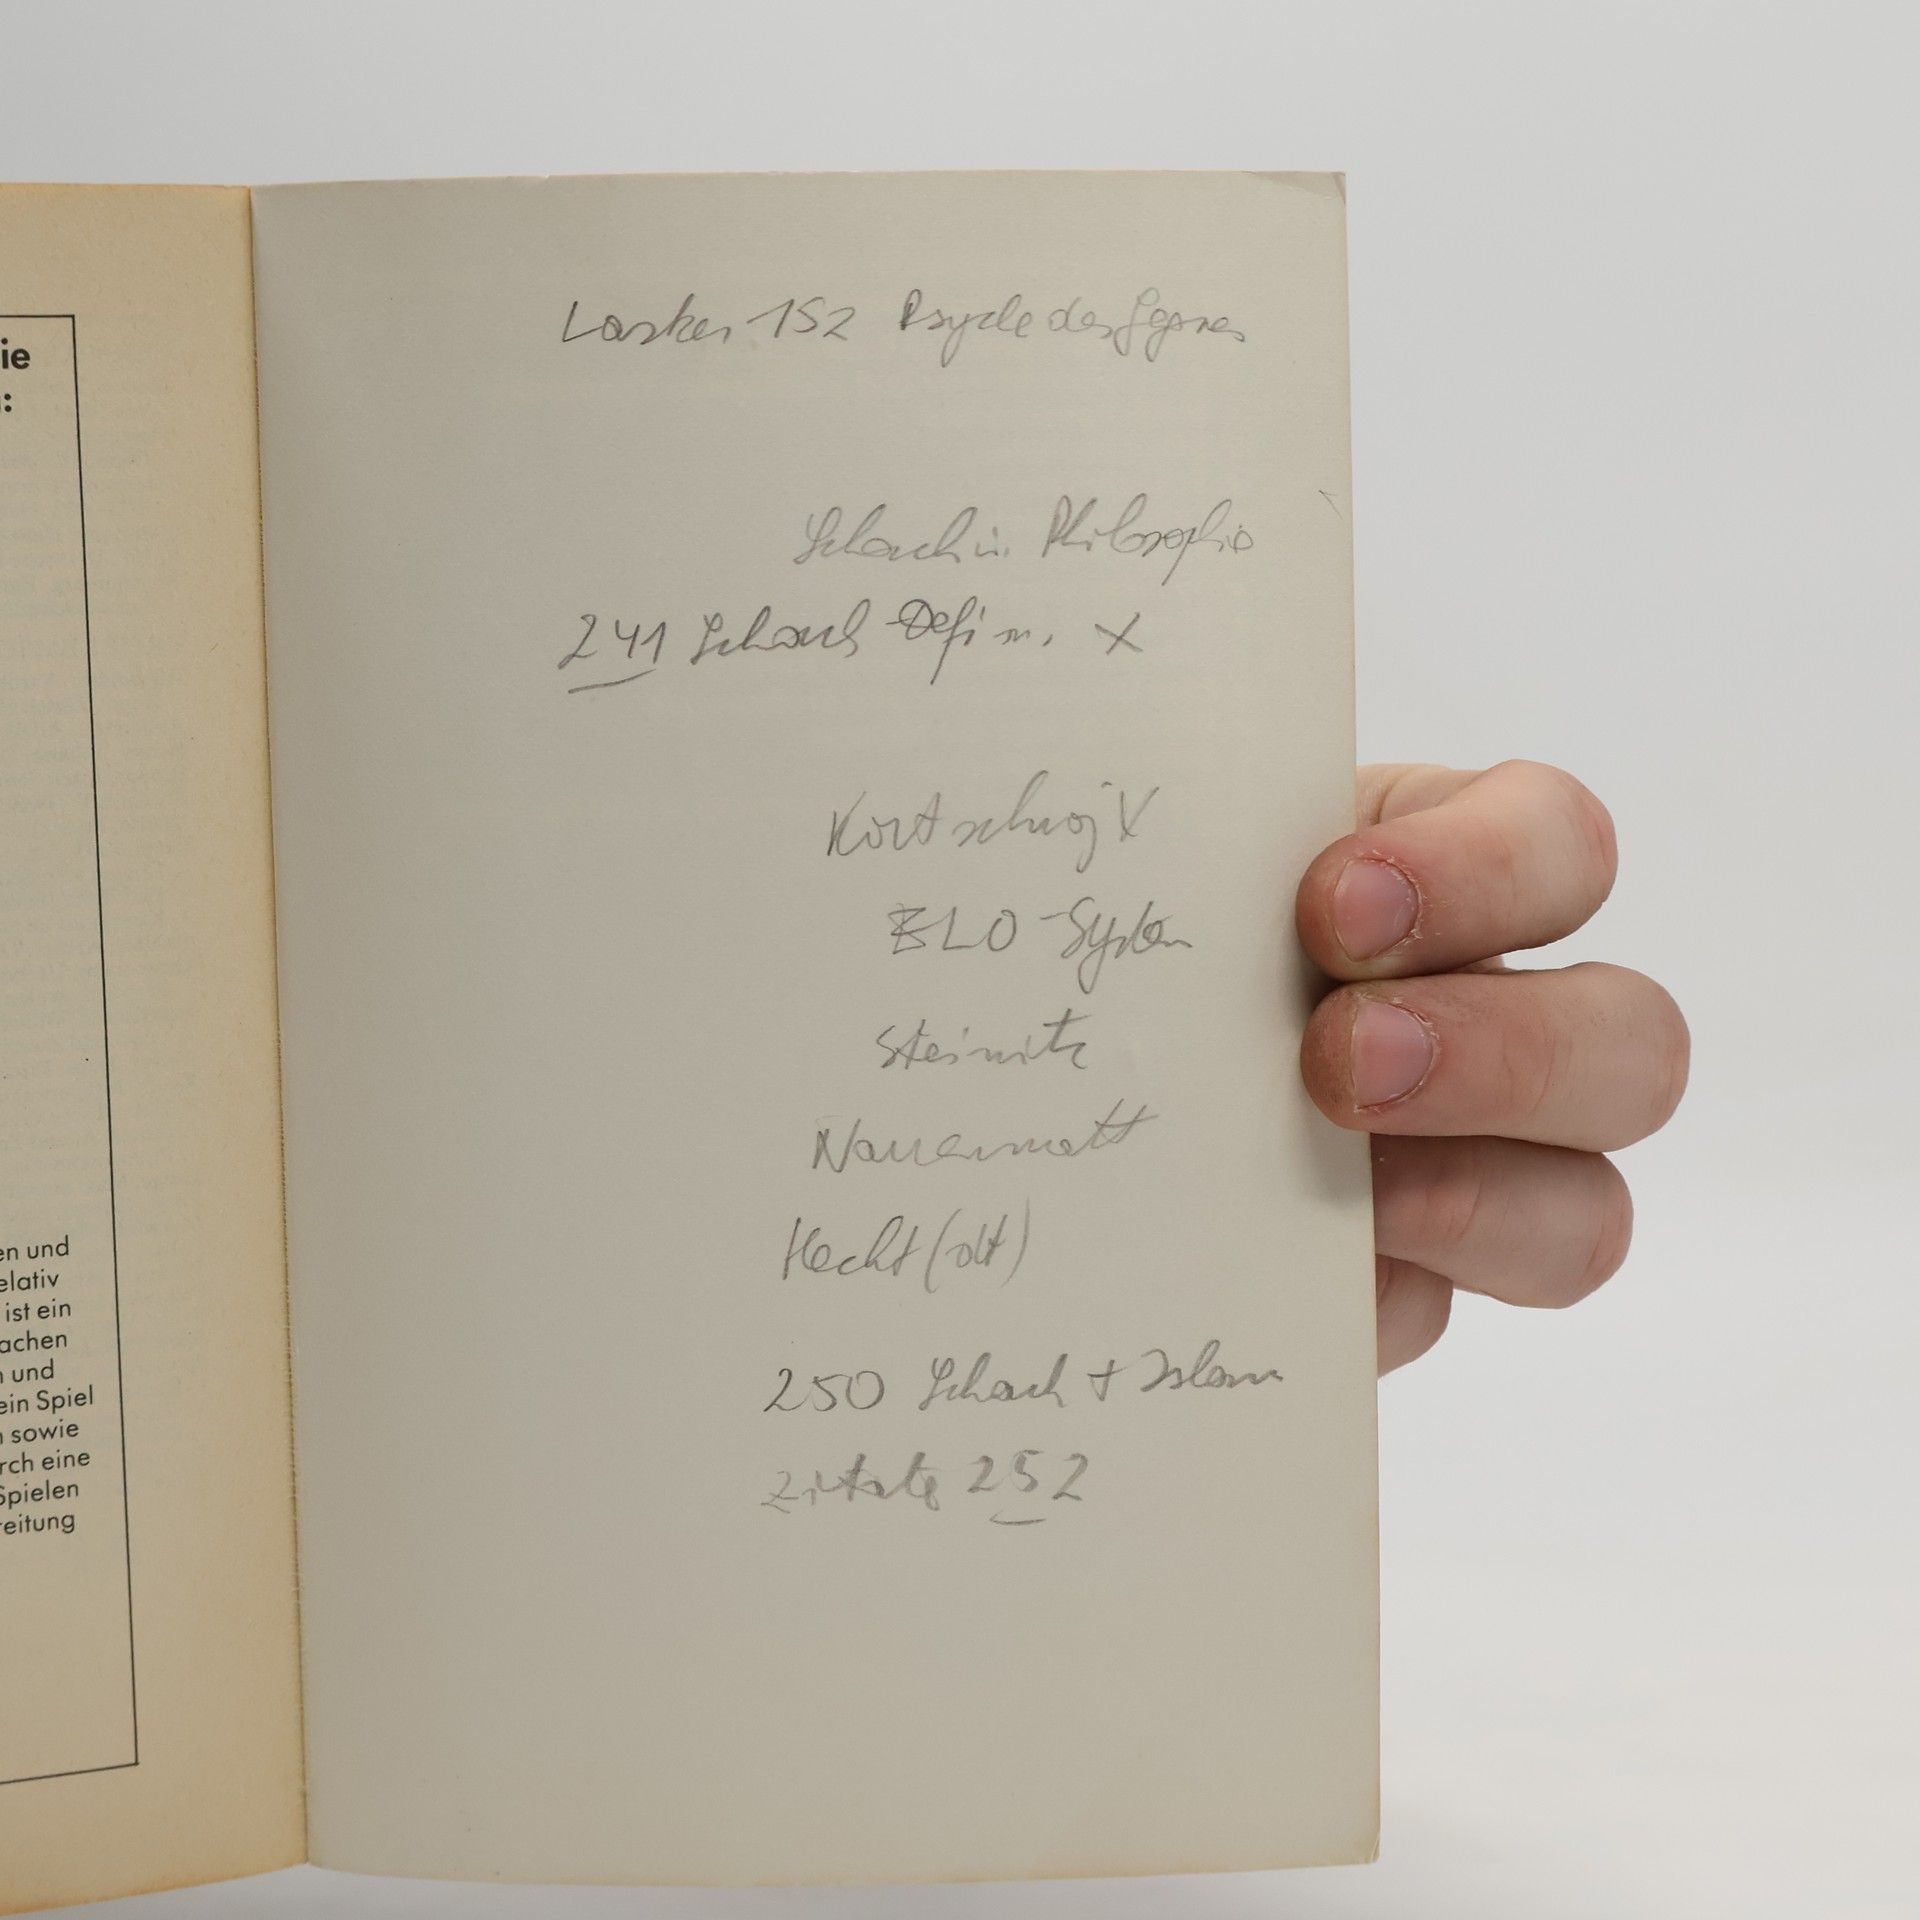 ie
:
en und
elativ
ist ein
achen
n und
ein Spiel
n sowie
rch eine
Spielen
reitung
Lasker 152 Psyche des Gegners
Schach u. Philosophie
241 Schach Defin. X
Kortschnoj X
ELO-System
Steinitz
Narrenmatt
Hecht (dt)
250 Schach + Islam
Zitate 252